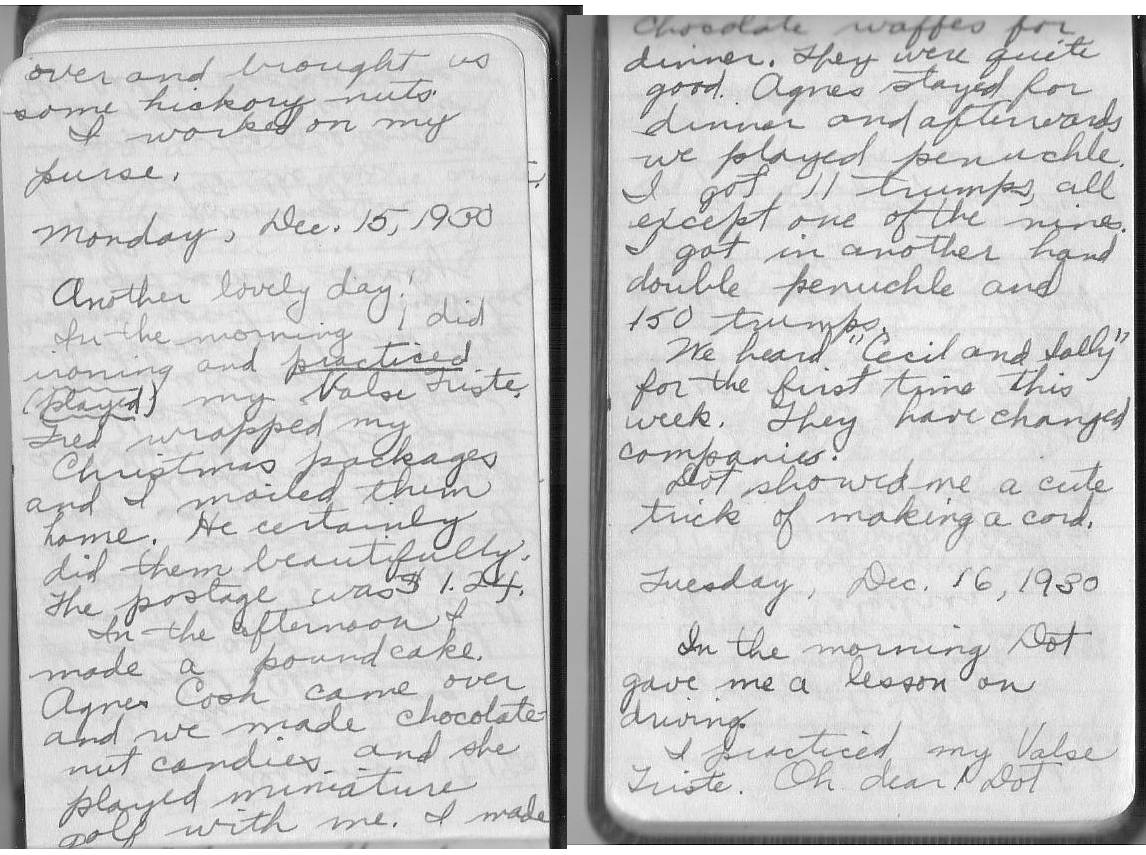 over and brought us
some hickory nuts.
I worked on my
purse.
Monday, Dec. 15, 1930
Another lovely day!
In the morning I did
ironing and practiced
(played) my Valse Triste.
Fred wrapped my
Christmas packages
and I mailed them
home. He certainly
did them beautifully.
The postage was $1.24.
In the afternoon I
made a poundcake.
Agnes Cosh came over
and we made chocolate
nut candies and she
played miniature
golf with me. I made
Chocolate waffes for
dinner. They were quite
good. Agnes stayed for
dinner and afterwards
we played penuchle.
I got 11 trumps, all
except one of the nines.
I got in another hand
double penuchle and
150 trumps.
We heard "Cecil and Sally"
for the first time this
week. They have changed
companies.
Dot showed me a cute
trick of making a cord.
Tuesday, Dec. 16, 1930
In the morning Dot
gave me a lesson on
driving.
I practiced my Valse
Triste. Oh dear! Dot